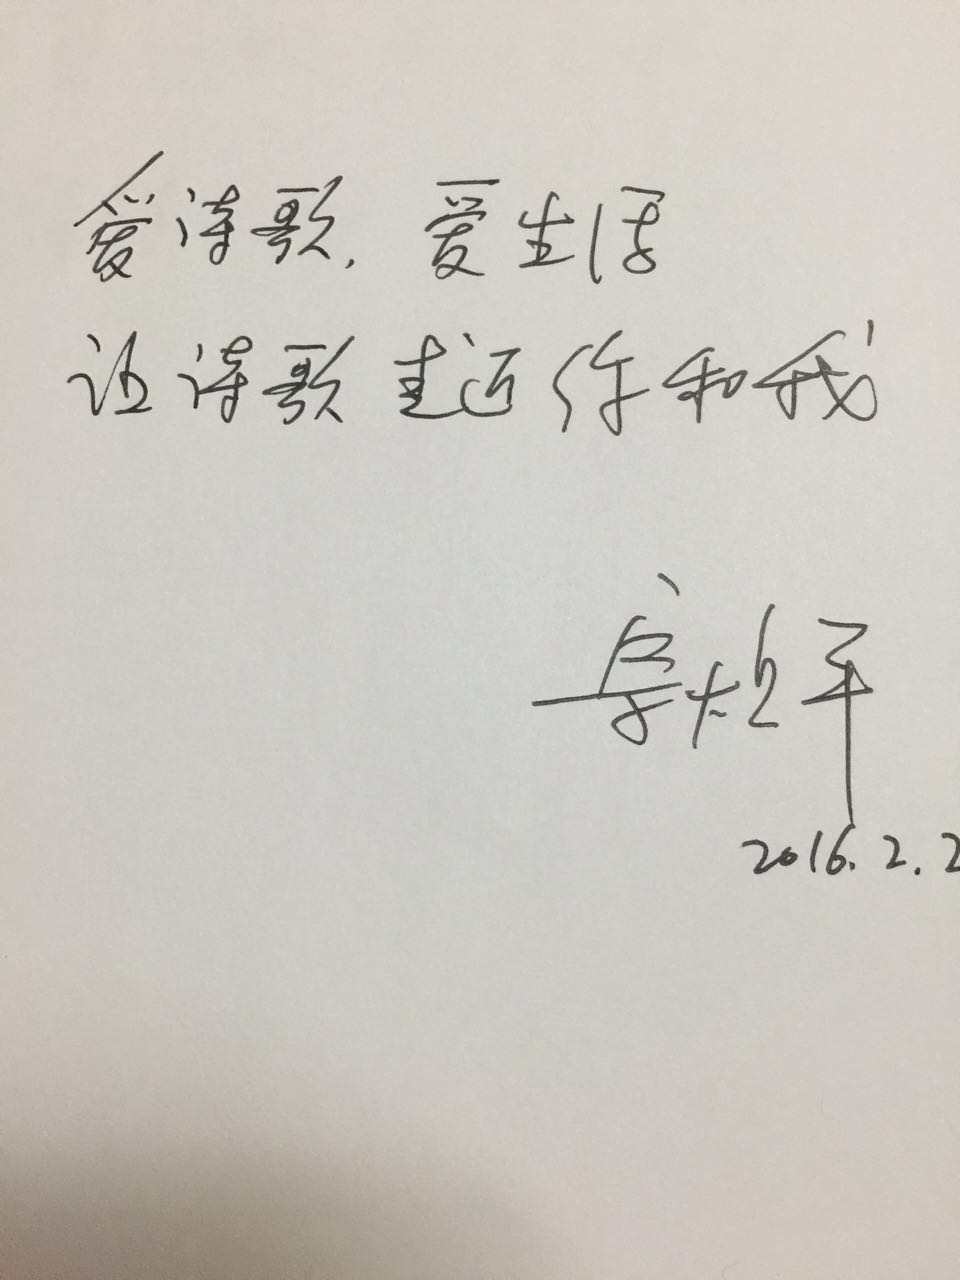 爱诗歌，爱生活
让诗歌走近你和我
2016.2.2